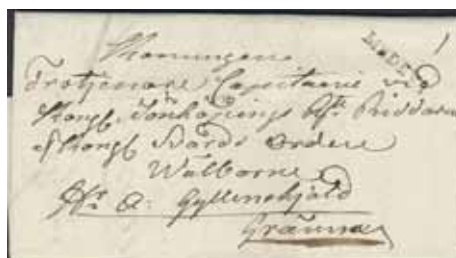 Konungens
Trotjenare Capitaine vid
Kongl Jönköpings Rte Riddare
af Kongl Svärds Orden
Wälborne
Hr A: Gyllenskjöld
Grenna